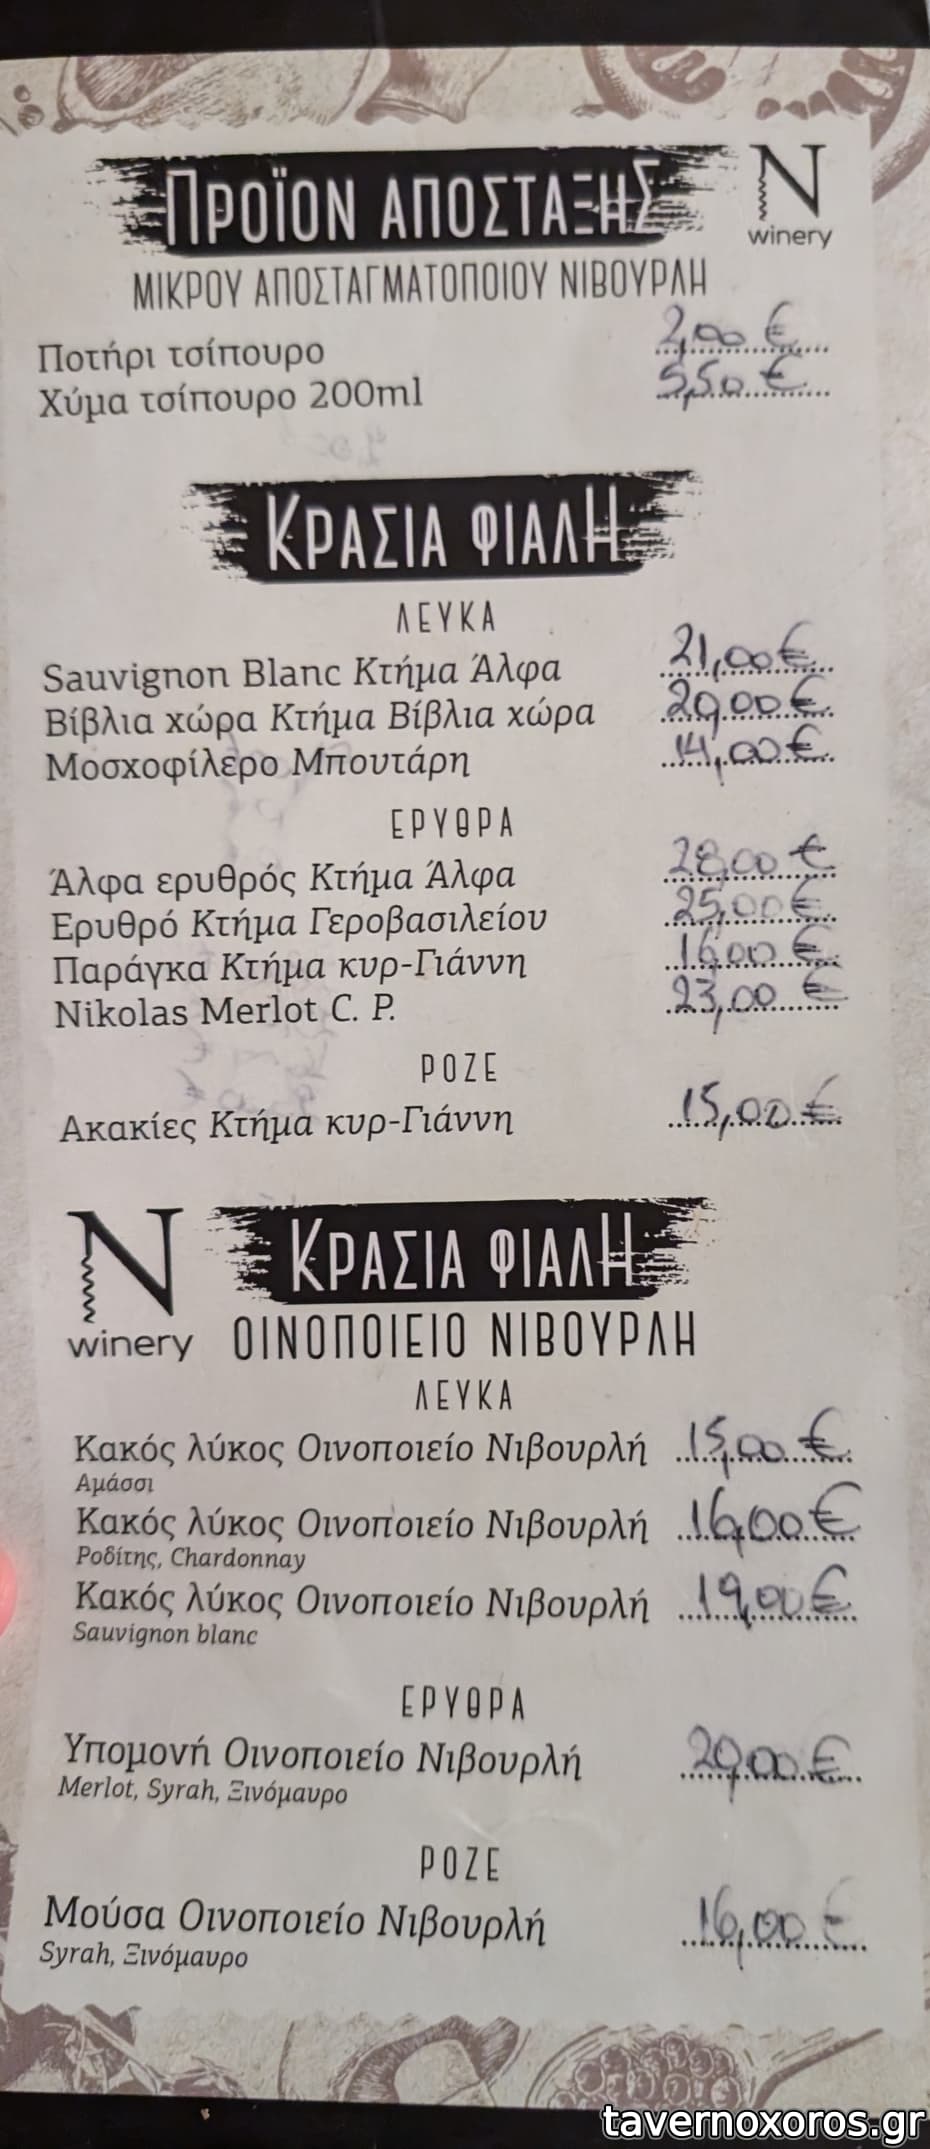 ΠΡΟΪΟΝ ΑΠΟΣΤΑΞΗΣ
N
winery
ΜΙΚΡΟΥ ΑΠΟΣΤΑΓΜΑΤΟΠΟΙΟΥ ΝΙΒΟΥΡΛΗ
Ποτήρι τσίπουρο 2,00 €
Χύμα τσίπουρο 200ml 5,50 €
ΚΡΑΣΙΑ ΦΙΑΛΗ
ΛΕΥΚΑ
Sauvignon Blanc Κτήμα Άλφα 21,00 €
Βίβλια χώρα Κτήμα Βίβλια χώρα 20,00 €
Μοσχοφίλερο Μπουτάρη 14,00 €
ΕΡΥΘΡΑ
Άλφα ερυθρός Κτήμα Άλφα 28,00 €
Ερυθρό Κτήμα Γεροβασιλείου 25,00 €
Παράγκα Κτήμα κυρ-Γιάννη 16,00 €
Nikolas Merlot C. P. 23,00 €
ΡΟΖΕ
Ακακίες Κτήμα κυρ-Γιάννη 15,00 €
N
winery
ΚΡΑΣΙΑ ΦΙΑΛΗ
ΟΙΝΟΠΟΙΕΙΟ ΝΙΒΟΥΡΛΗ
ΛΕΥΚΑ
Κακός λύκος Οινοποιείο Νιβουρλή 15,00 €
Αμάσσι
Κακός λύκος Οινοποιείο Νιβουρλή 16,00 €
Ροδίτης, Chardonnay
Κακός λύκος Οινοποιείο Νιβουρλή 19,00 €
Sauvignon blanc
ΕΡΥΘΡΑ
Υπομονή Οινοποιείο Νιβουρλή 20,00 €
Merlot, Syrah, Ξινόμαυρο
ΡΟΖΕ
Μούσα Οινοποιείο Νιβουρλή 16,00 €
Syrah, Ξινόμαυρο
tavernoxoros.gr